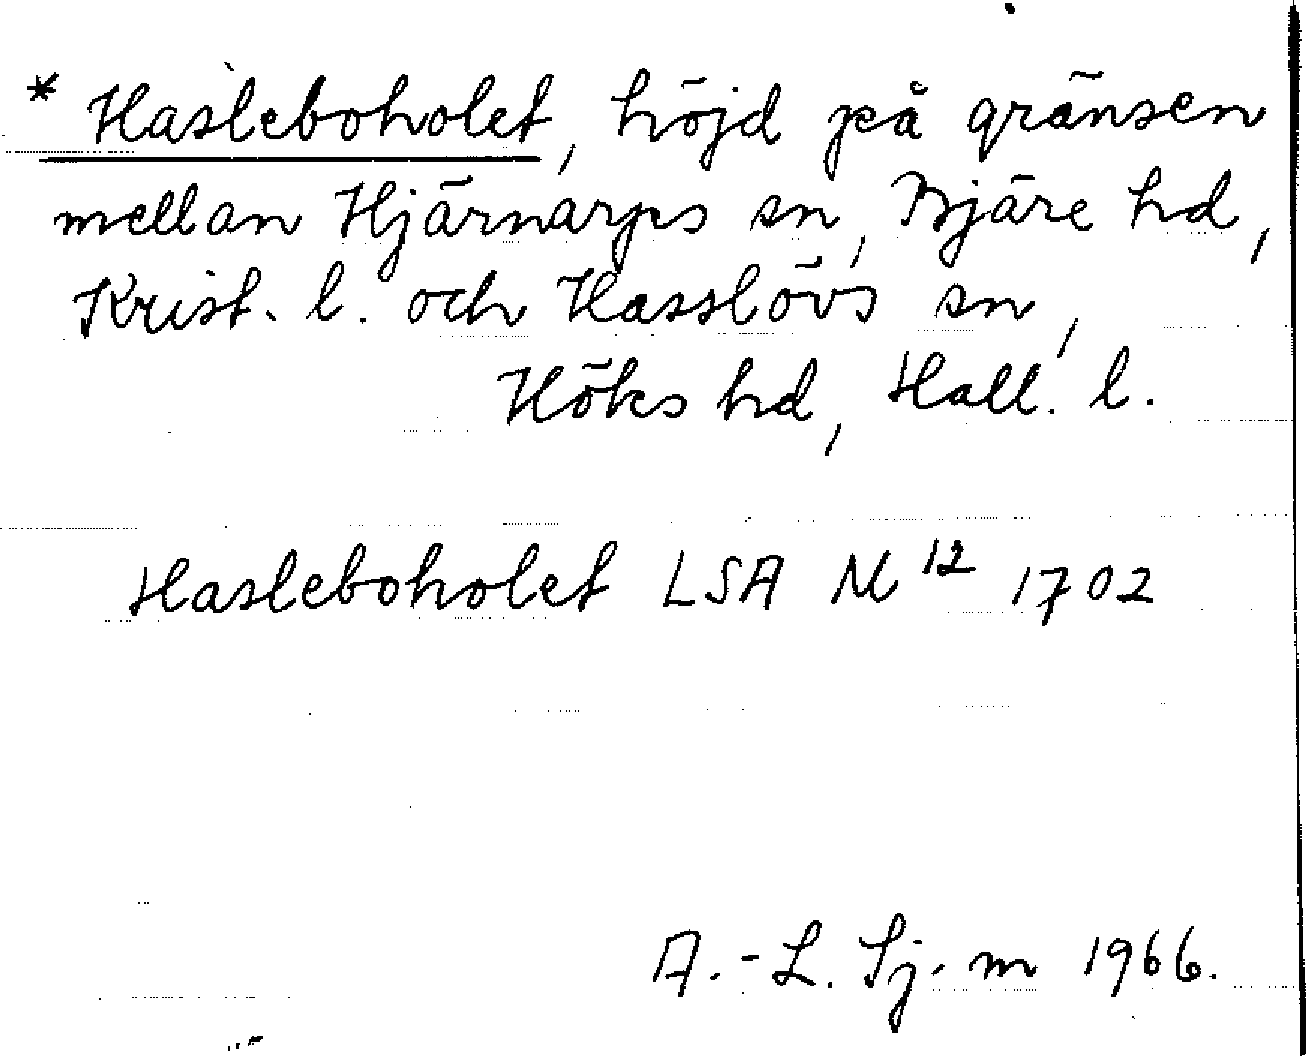 * Hasleboholet, höjd på gränsen
mellan Hjärnarps sn, Bjäre hd,
Krist. l. och Hasslövs sn,
Höks hd, Hall. l.
Hasleboholet LSA M 12 1702
A.-L. Sj. m 1966.